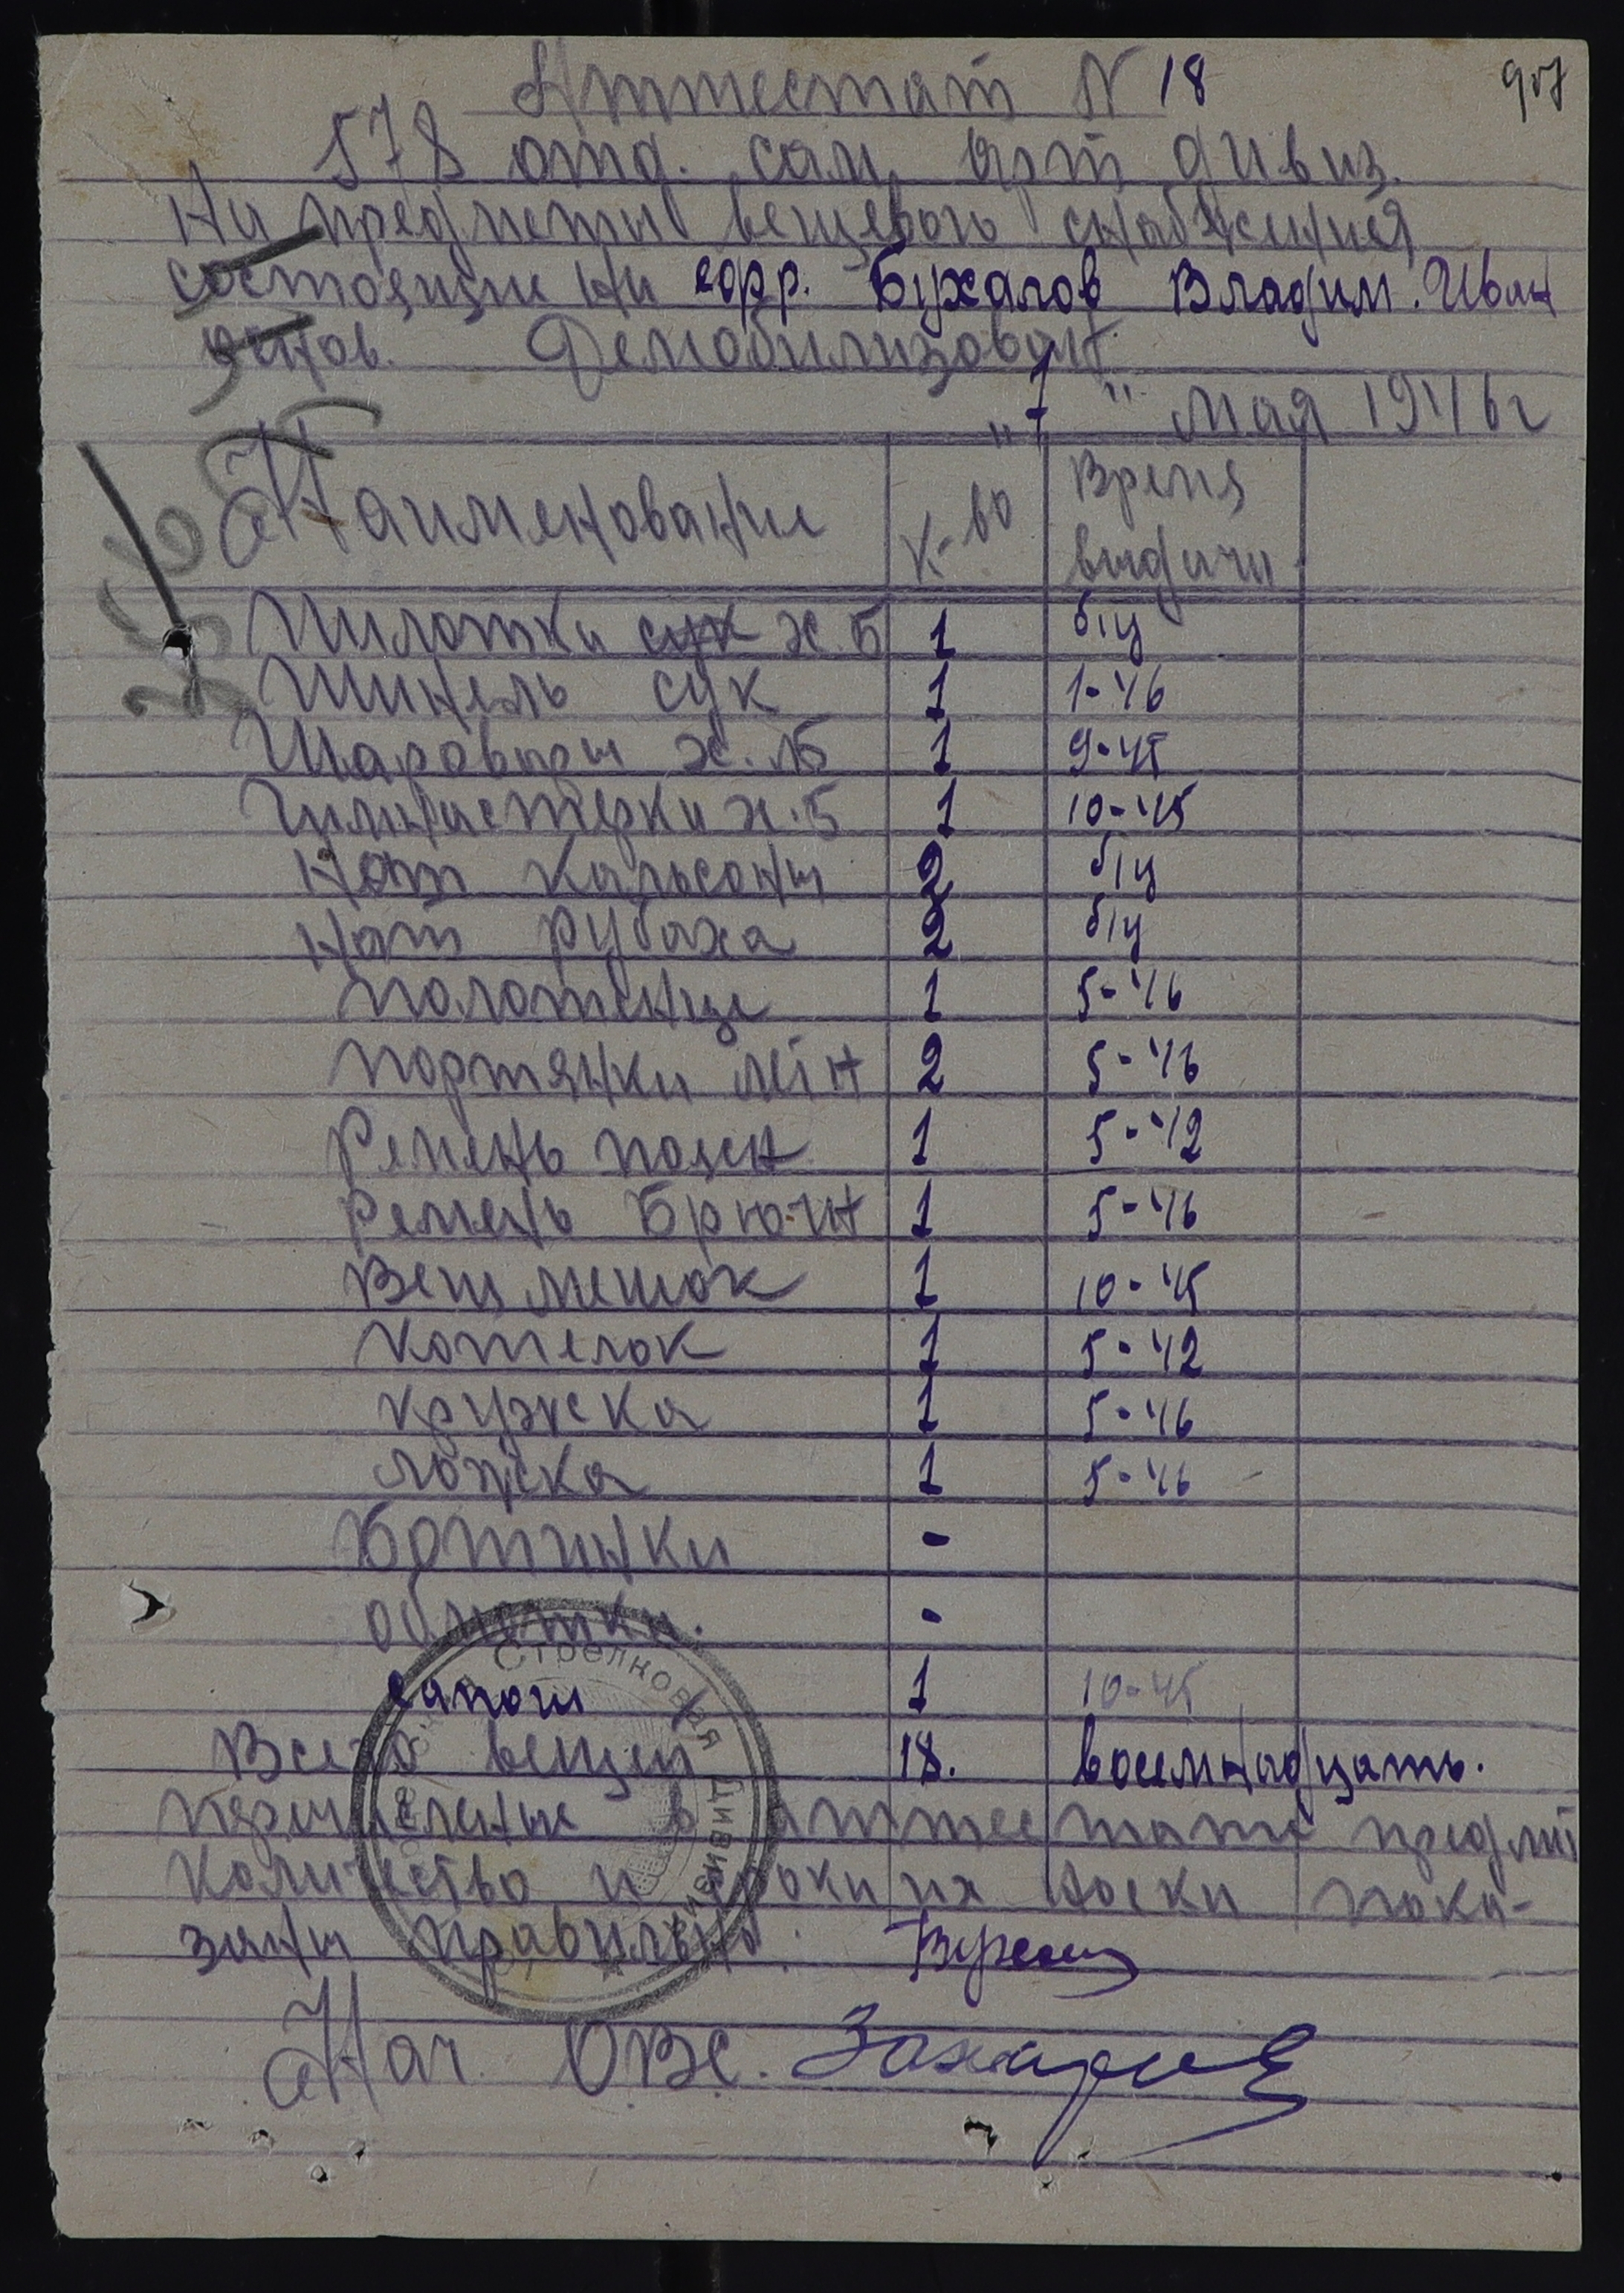 907
Аттестат N 18
578 отд. сам. арт дивиз.
На предметы вещевого снабжения
состоящие на ефр. Бухалов Владим. Иван
Демобилизован.
"7" мая 1946 г
Наименование К-во Время выдачи
Пилотка сук х.б 1 б/ц
Шинель сук 1 1-46
Шаровары х.б 1 9-45
Гимнастерка х.б 1 10-45
Нат кальсоны 2 б/ц
Нат рубаха 2 б/ц
Полотенце 1 5-46
Портянки летн 2 5-46
Ремень поясн 1 5-42
Ремень Брючн 1 5-46
Вещ мешок 1 10-45
Котелок 1 5-42
Кружка 1 5-46
Ложка 1 5-46
Ботинки -
Обмотки. -
сапоги 1 10-45
Всего вещей 18. восемнадцать.
Перечисленые в аттестате предмет
количество и сроки их носки пока-
заны правильно.
Нач ОВС.
Стрелковая Дивизия